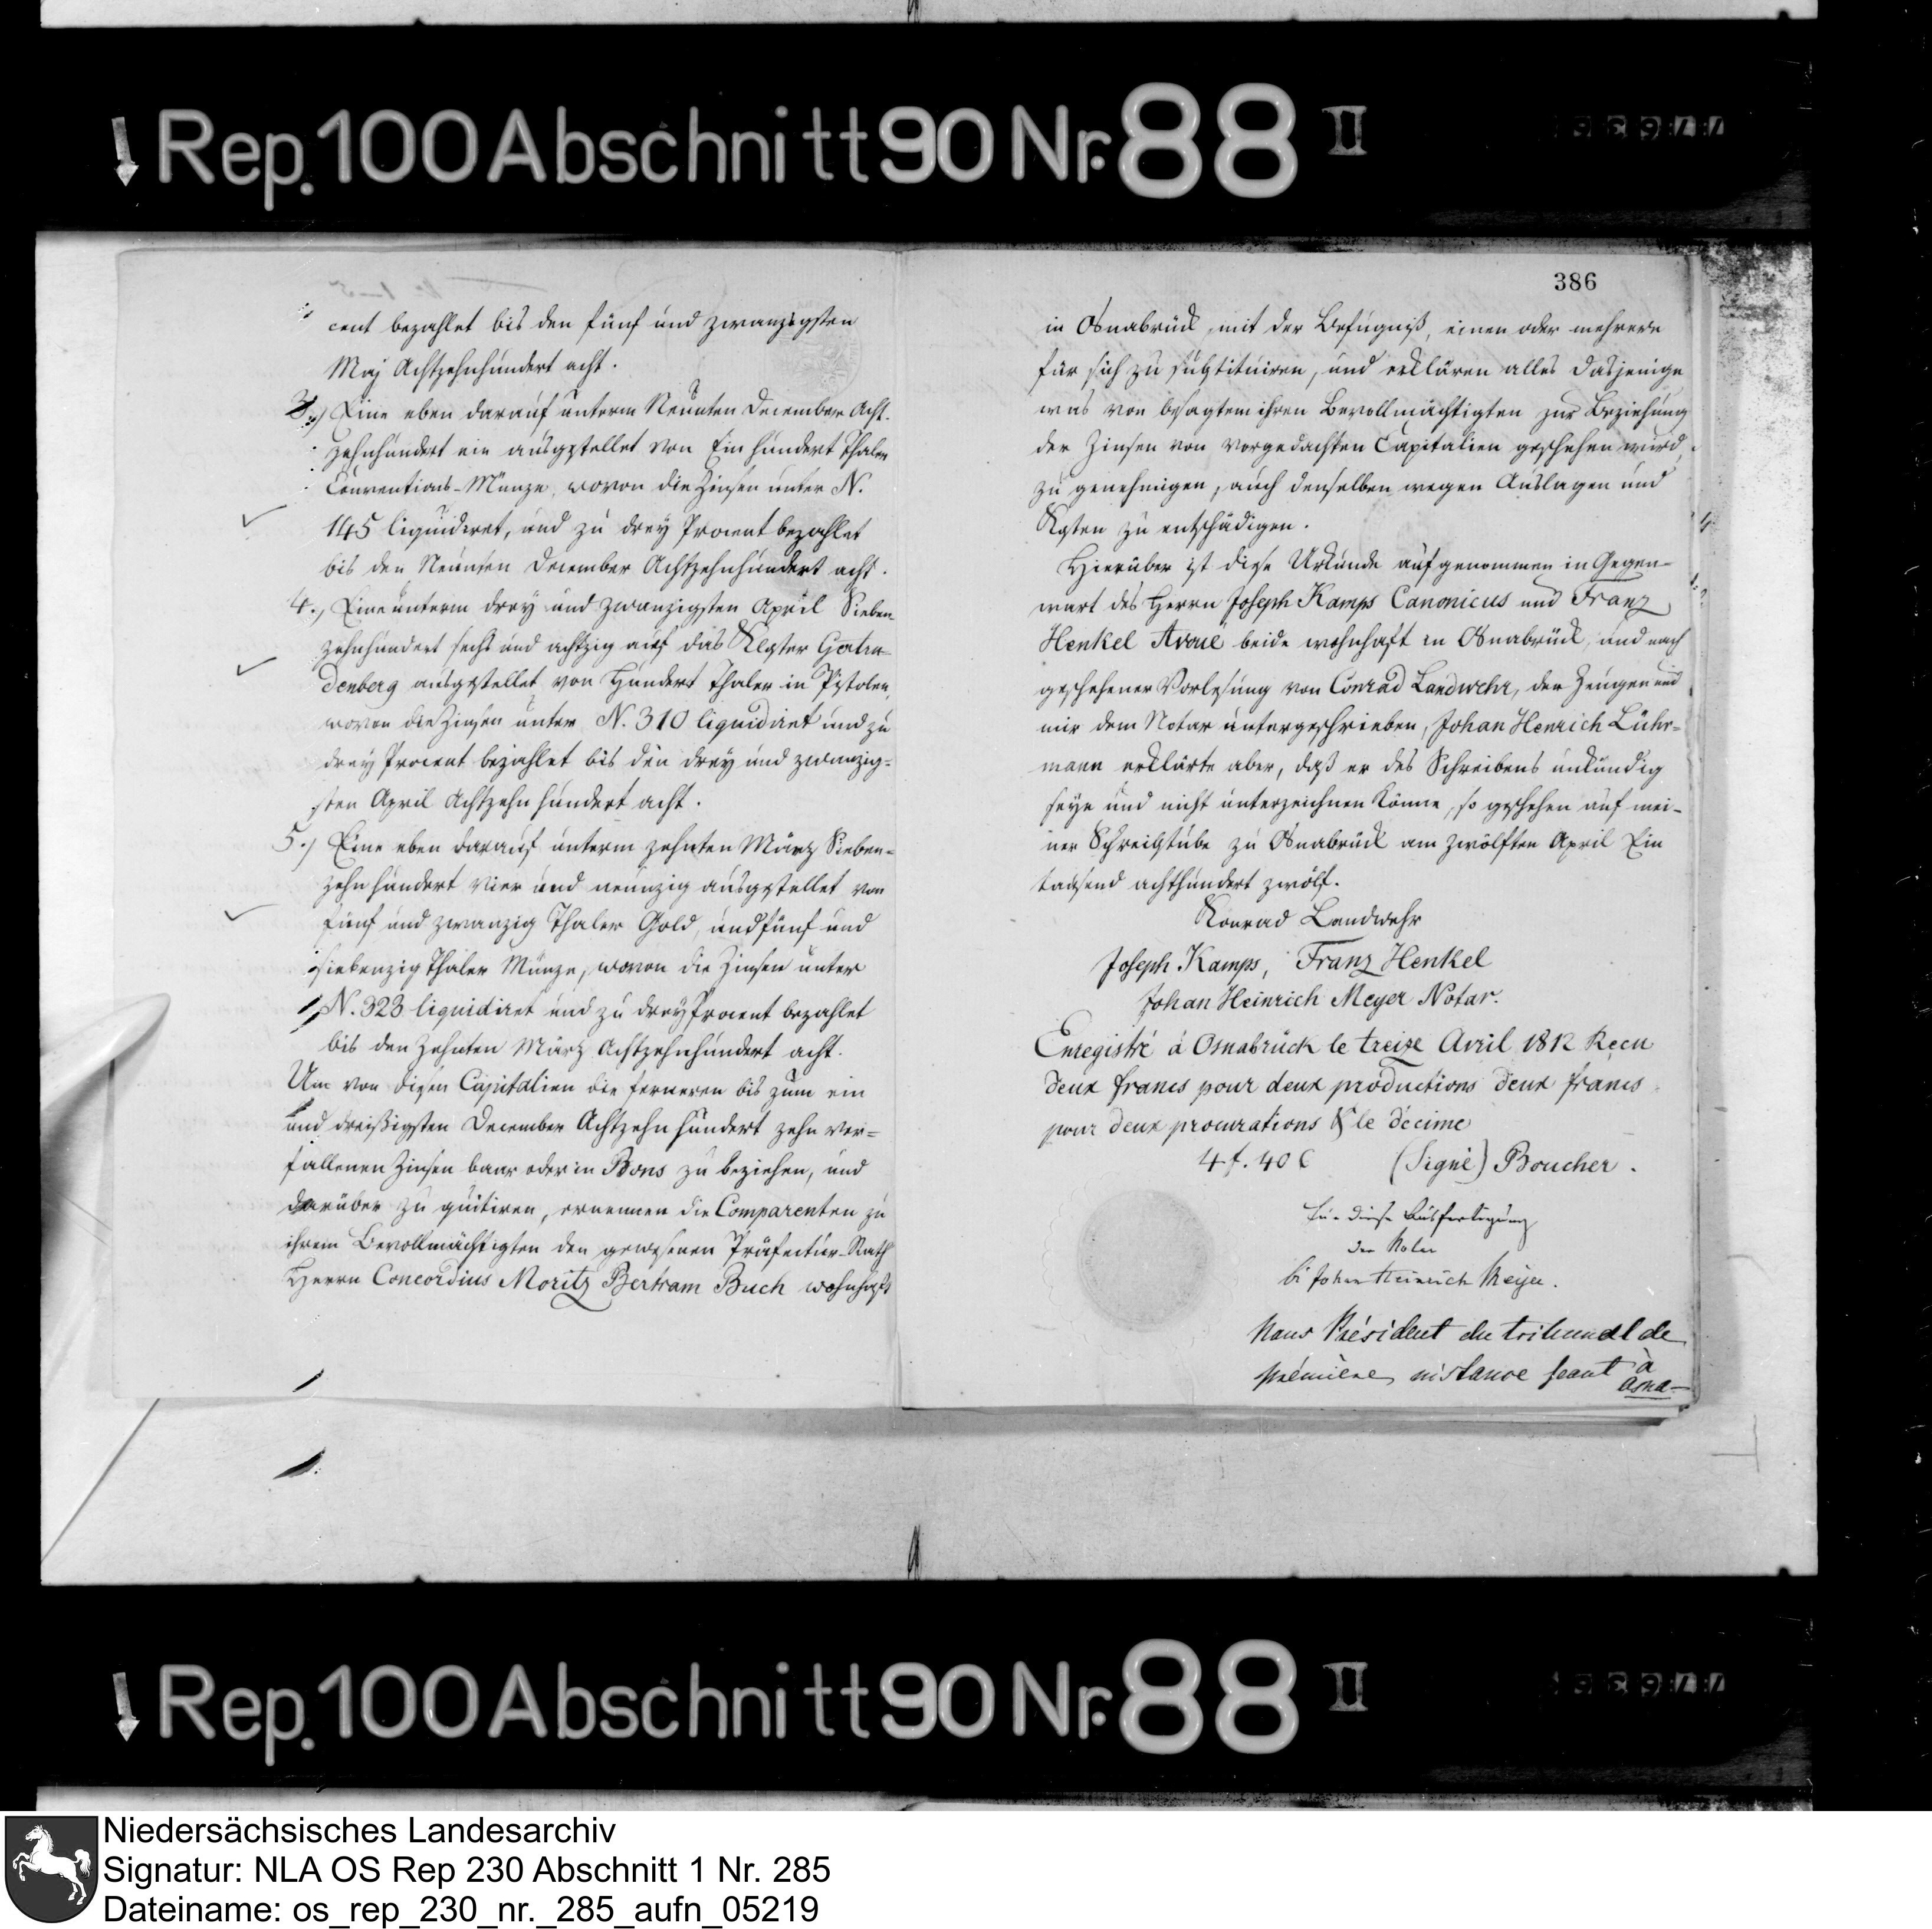 Rep.100 Abschnitt 90 Nr. 88 II
cent bezahlet bis den fünf und zwanzigsten
Maj Achtzehnhundert acht.
3.) Eine eben darauf unterm Neünten December Acht-
zehnhundert ein ausgestellet von Ein hundert Thaler
Conventions-Münze, wovon die Zinsen unter N.
145 liquidiret, und zu drey Procent bezahlet
bis den Neünten December Achtzehnhundert acht.
4.) Eine unterm drey und zwanzigsten April Sieben-
zehnhundert sechs und achtzig auf das Kloster Gertru-
denberg ausgestellet von Hundert Thaler in Pistolen,
wovon die Zinsen unter N. 310 liquidiret und zu
drey Procent bezahlet bis den drey und zwanzig-
sten April Achtzehn hundert acht.
5.) Eine eben darauf unterm zehnten März Sieben-
zehn hundert vier und neunzig ausgestellet von
fünf und zwanzig Thaler Gold, und fünf und
siebenzig Thaler Münze, wovon die Zinsen unter
N. 323 liquidiret und zu drey Procent bezahlet
bis den Zehnten März Achtzehnhundert acht.
Um von diesen Capitalien die ferneren bis zum ein
und dreißigsten December Achtzehn hundert zehn ver-
fallenen Zinsen baar oder in Bons zu beziehen, und
darüber zu quitiren, ernennen die Comparenten zu
ihrem Bevollmächtigten den gewesenen Präfectur-Rath
Herrn Concordius Moritz Bertram Buch wohnhaft
386
in Osnabrück, mit der Befugniß, einen oder mehrere
für sich zu substituiren, und erklären alles dasjenige
was von besagtem ihren Bevollmächtigten zur Beziehung
der Zinsen von vorgedachten Capitalien geschehen wird,
zu genehmigen, auch denselben wegen Auslagen und
Kosten zu entschädigen.
Hierüber ist diese Urkunde aufgenommen in Gegen-
wart des Herrn Joseph Kamps Canonicus und Franz
Henkel Avoué beide wohnhaft in Osnabrück, und nach
geschehener Vorlesung von Conrad Landwehr, den Zeugen und
mir dem Notar untergeschrieben, Johan Henrich Lühr-
mann erklärte aber, daß er des Schreibens unkundig
seye und nicht unterzeichnen könne, so geschehen auf mei-
ner Schreibstube zu Osnabrück am zwölften April Ein
tausend achthundert zwölf.
Konrad Landwehr
Joseph Kamps, Franz Henkel
Johan Heinrich Meyer Notar.
Enregistré à Osnabrück le treize Avril 1812 Reçu
deux francs pour deux productions deux francs
pour deux procurations & le décime
4 f. 40 C (Signé) Boucher.
Für diese Ausfertigung
der Notar
Johan Heinrich Meyer.
Nous Président du tribunal de
première instance séant à
Osna-
Rep.100 Abschnitt 90 Nr. 88 II
Niedersächsisches Landesarchiv
Signatur: NLA OS Rep 230 Abschnitt 1 Nr. 285
Dateiname: os_rep_230_nr._285_aufn_05219